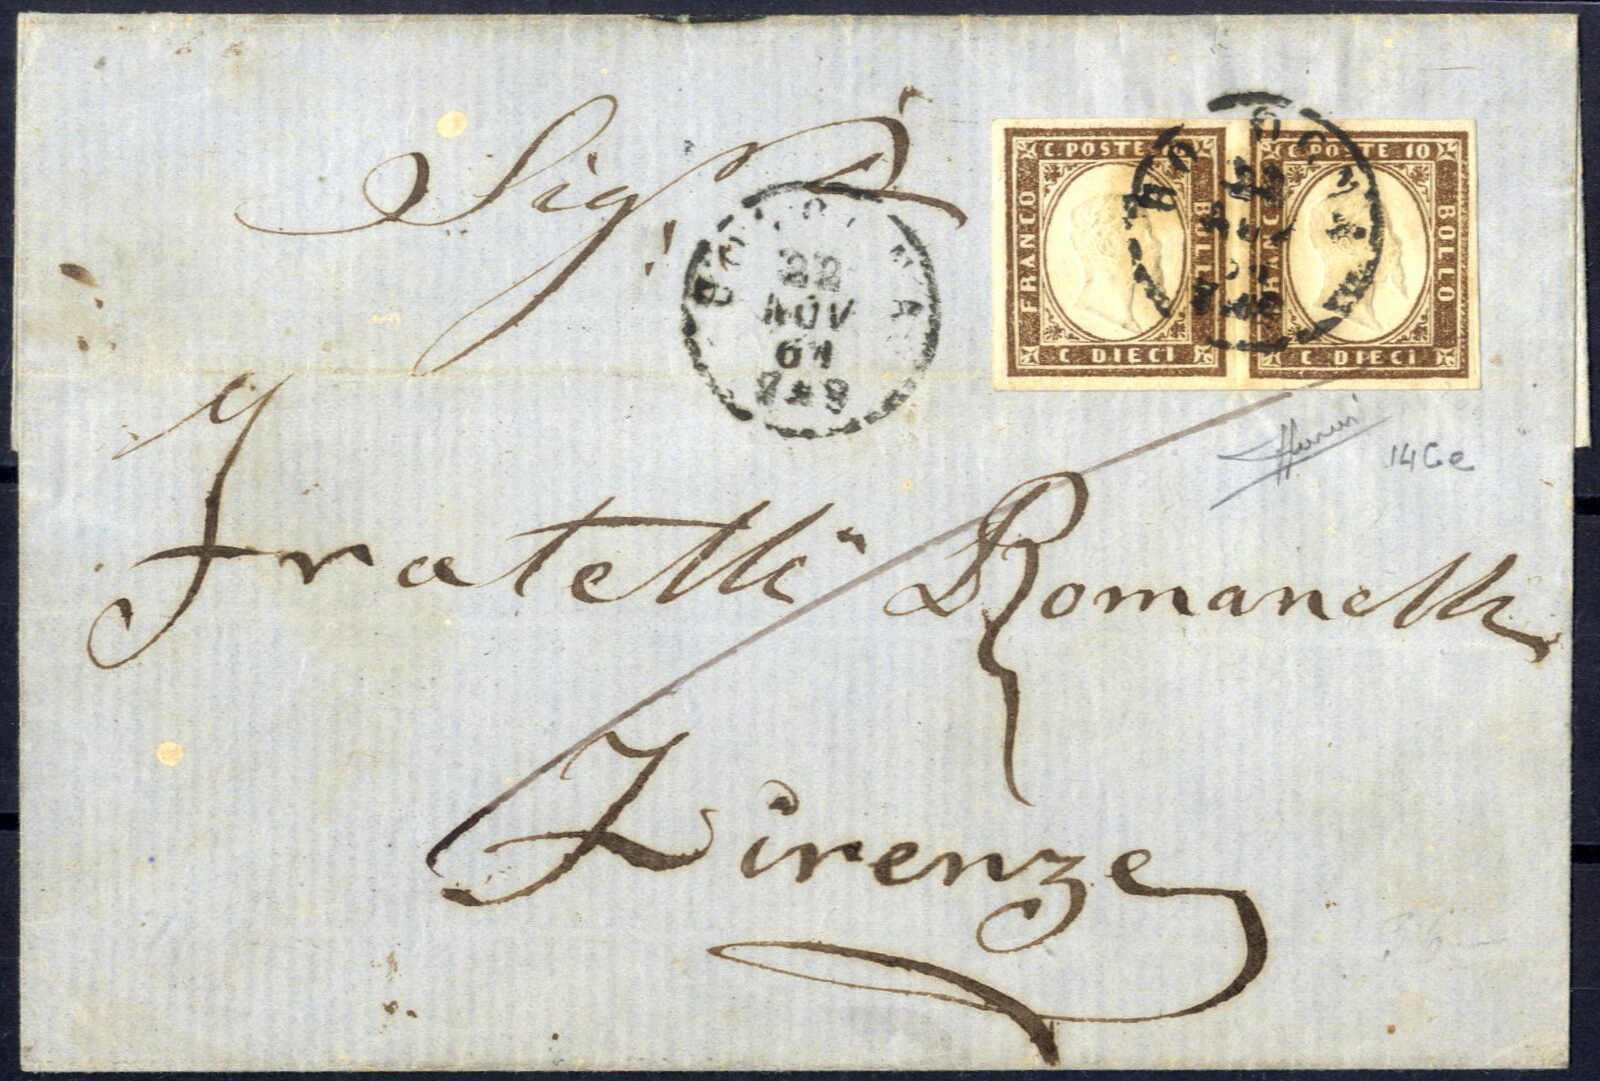 Sig.ri
C. POSTE 10 C. POSTE 10
FRANCO BOLLO FRANCO BOLLO
C DIECI C DIECI
BOLOGNA
22
NOV
61
BOLOGNA
22
NOV
14Ce
Fratelli Romanelli
Firenze